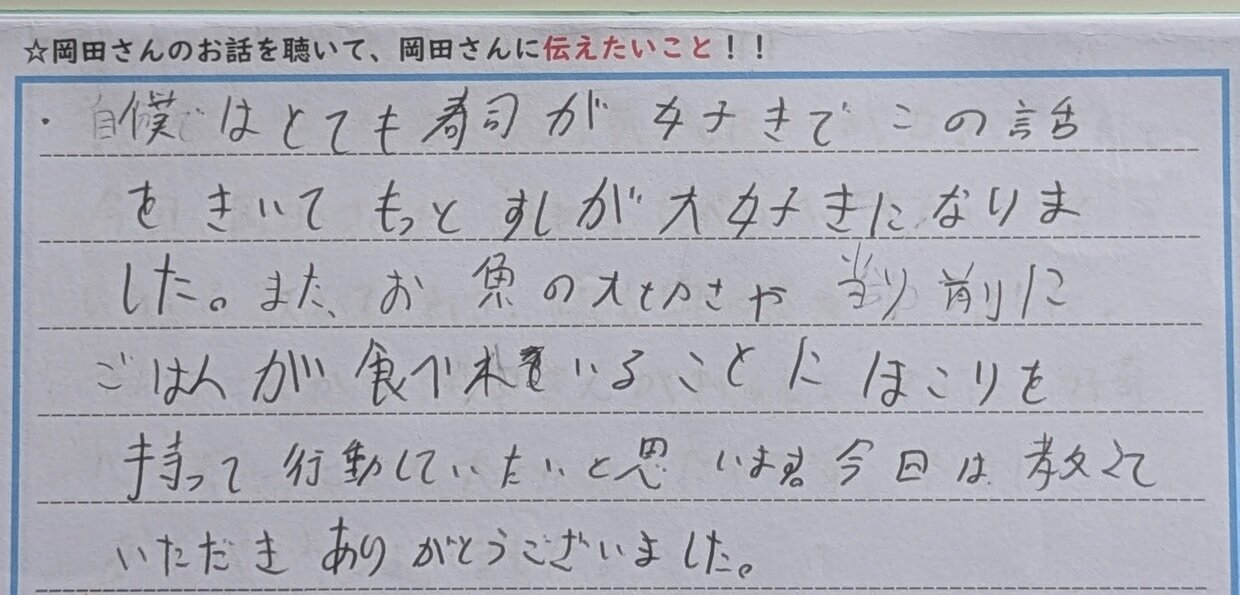 ☆岡田さんのお話を聴いて、岡田さんに伝えたいこと！！
・僕はとても寿司が好きでこの話
をきいてもっとすしが大好きになりま
した。また、お魚の大切さや当り前に
ごはんが食べれていることにほこりを
持って行動していたいと思います。今日は教えて
いただきありがとうございました。